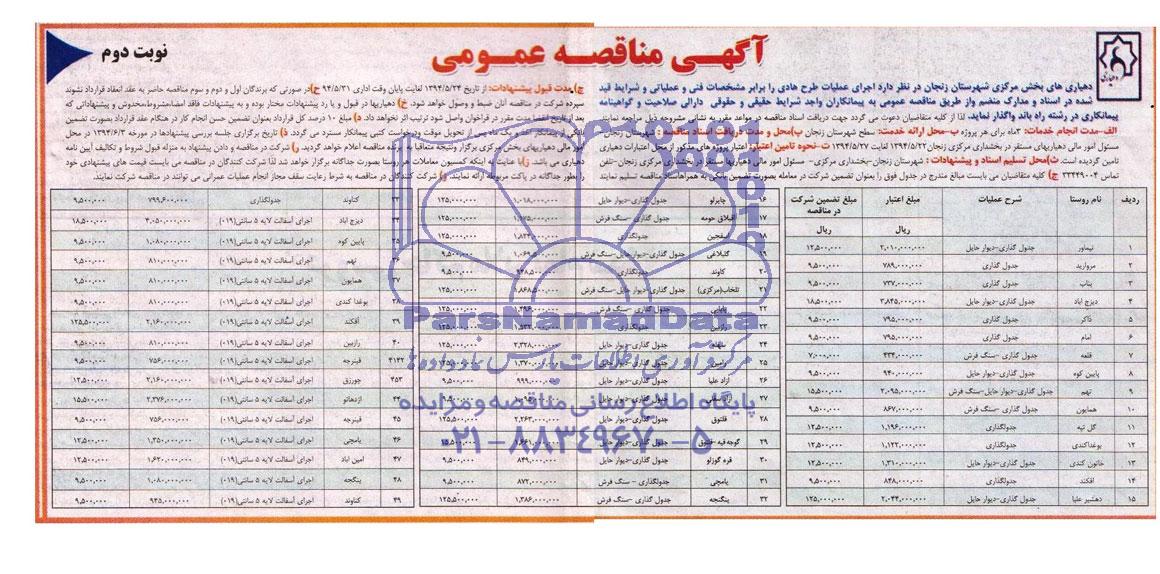 آگهی مناقصه عمومی
نوبت دوم
دهیاری
دهیاری های بخش مرکزی شهرستان زنجان در نظر دارد اجرای عملیات طرح هادی را برابر مشخصات فنی و عملیاتی و شرایط قید
شده در اسناد و مدارک منضم واز طریق مناقصه عمومی به پیمانکاران واجد شرایط حقیقی و حقوقی دارالی صلاحیت و گواهینامه
پیمانکاری در رشته راه باند واگذار نماید. لذا از کلیه متقاضیان دعوت می گردد جهت دریافت اسناد مناقصه در مواعد مقرر به نشانی مشروحه ذیل مراجعه نمایند
الف-مدت انجام خدمات: ۳ماه برای هر پروژه ب-محل ارائه خدمت: سطح شهرستان زنجان پ)محل و مدت دریافت اسناد مناقصه: شهرستان زنجان
مسئول امور مالی دهیاریهای مستقر در بخشداری مرکزی زنجان ۱۳۹۴/۵/۲۲ لغایت ۱۳۹۴/۵/۲۷ ت-نحوه تامین اعتبار: اعتبار پروژه های مذکور از محل اعتبارات دهیاری
تامین گردیده است. ث)محل تسلیم اسناد و پیشنهادات: شهرستان زنجان-بخشداری مرکزی- مسئول امور مالی دهیاریها مستقر در بخشداری مرکزی زنجان-تلفن
تماس ۳۳۴۴۹۰۰۴ ج) کلیه متقاضیان می بایست مبالغ مندرج در جدول فوق را بعنوان تضمین شرکت در معامله بصورت تضمین بانکی به همراه اسناد مناقصه تسلیم نمایند
چ)مدت قبول پیشنهادات: از تاریخ ۱۳۹۴/۵/۲۴ لغایت پایان وقت اداری ۹۴/۵/۳۱ ح)در صورتی که برندگان اول و دوم و سوم مناقصه حاضر به عقد انعقاد قرارداد نشوند
سپرده شرکت در مناقصه آنان ضبط و وصول خواهد شد. خ) دهیاریها در قبول و یا رد پیشنهادات مختار بوده و به پیشنهادات فاقد امضا،مشروط،مخدوش و پیشنهاداتی که
بعد از تاریخ انقضا مدت مقرر در فراخوان واصل شود ترتیب اثر نخواهد داد. د) مبلغ ۱۰ درصد کل قرارداد بعنوان تضمین حسن انجام کار در هنگام عقد قرارداد بصورت تضمین
بانکی از پیمانکار اخذ و یک ماه پس از تحویل موقت ودرخواست کتبی پیمانکار مسترد می گردد. ذ) تاریخ برگزاری جلسه بررسی پیشنهادها در مورخه ۱۳۹۴/۶/۳ در محل
امور مالی دهیاریهای بخش مرکزی برگزار ونتیجه متعاقبا به برنده مناقصه اعلام خواهد گردید. ر) شرکت در مناقصه و دادن پیشنهاد به منزله قبول شروط و تکالیف آیین نامه
دهیاری می باشد. ز)با عنایت به اینکه کمیسیون معاملات هر روستا بصورت جداگانه برگزار خواهد شد لذا شرکت کنندگان در مناقصه می بایست قیمت های پیشنهادی خود
را بطور جداگانه در پاکت مربوطه ارائه نمایند. و) شرکت کنندگان در مناقصه به شرط رعایت سقف مجاز انجام عملیات عمرانی می توانند در مناقصه شرکت نمایند.
ردیف نام روستا شرح عملیات مبلغ اعتبار مبلغ تضمین شرکت در مناقصه
ریال ریال
۱ نیماور جدول گذاری-دیوار حایل ۲,۰۱۰,۰۰۰,۰۰۰ ۱۲,۵۰۰,۰۰۰
۲ مروارید جدول گذاری ۷۸۹,۰۰۰,۰۰۰ ۹,۵۰۰,۰۰۰
۳ پناب جدول گذاری ۷۳۷,۰۰۰,۰۰۰ ۹,۵۰۰,۰۰۰
۴ دیزج اباد جدول گذاری-دیوار حایل ۳,۸۴۵,۰۰۰,۰۰۰ ۱۸,۵۰۰,۰۰۰
۵ ذاکر جدول گذاری ۷۹۵,۰۰۰,۰۰۰ ۹,۵۰۰,۰۰۰
۶ امام جدول گذاری ۷۹۵,۰۰۰,۰۰۰ ۹,۵۰۰,۰۰۰
۷ قلعه جدول گذاری -سنگ فرش ۴۳۴,۰۰۰,۰۰۰ ۷,۰۰۰,۰۰۰
۸ پایین کوه جدول گذاری-دیوار حایل ۹۴۰,۰۰۰,۰۰۰ ۹,۵۰۰,۰۰۰
۹ تهم جدول گذاری-دیوار حایل-سنگ فرش ۲,۰۹۵,۰۰۰,۰۰۰ ۱۵,۵۰۰,۰۰۰
۱۰ همایون جدول گذاری -سنگ فرش ۸۶۷,۰۰۰,۰۰۰ ۹,۵۰۰,۰۰۰
۱۱ گل تپه جدولگذاری ۱,۱۹۶,۰۰۰,۰۰۰ ۱۲,۵۰۰,۰۰۰
۱۲ بوغداکندی جدولگذاری ۱,۱۲۲,۰۰۰,۰۰۰ ۱۲,۵۰۰,۰۰۰
۱۳ خاتون کندی جدول گذاری-دیوار حایل ۱,۳۱۰,۰۰۰,۰۰۰ ۱۲,۵۰۰,۰۰۰
۱۴ افکند جدولگذاری ۸۴۸,۰۰۰,۰۰۰ ۹,۵۰۰,۰۰۰
۱۵ دهشیر علیا جدول گذاری-دیوار حایل ۲,۰۴۴,۰۰۰,۰۰۰ ۱۲۵,۰۰۰,۰۰۰
۱۶ چایرلو جدول گذاری-دیوار حایل ۱,۰۱۸,۰۰۰,۰۰۰ ۱۲۵,۰۰۰,۰۰۰
۱۷ قبلاق حومه جدول گذاری -سنگ فرش ۱۲۵,۰۰۰,۰۰۰
۱۸ جدولگذاری ۱۲۵,۰۰۰,۰۰۰
۱۹ گلبلاغی جدول گذاری-دیوار حایل-سنگ فرش ۹,۵۰۰,۰۰۰
۲۰ کاوند جدولگذاری ۹,۵۰۰,۰۰۰
۲۱ تلخاب(مرکزی) جدول گذاری-دیوار حایل-سنگ فرش
۲۲ پاپایی
۲۳ رازبین
۲۴ جدول گذاری-دیوار حایل ۲,۳۲۸,۰۰۰,۰۰۰
۲۵ جدول گذاری-دیوار حایل ۱,۳۷۰,۰۰۰,۰۰۰
۲۶ ازاد علیا جدول گذاری-دیوار حایل ۹۹۹,۰۰۰,۰۰۰ ۹,۵۰۰,۰۰۰
۲۷
۲۸ قلتوق جدول گذاری-دیوار حایل
۲۹ گوجه قیه-قلتوق جدول گذاری-دیوار حایل ۱۵,۵۰۰,۰۰۰
۳۰ قره گوزلو جدول گذاری-دیوار حایل ۸۴۹,۰۰۰,۰۰۰ ۹,۵۰۰,۰۰۰
۳۱ یامچی جدولگذاری -سنگ فرش ۸۷۲,۰۰۰,۰۰۰ ۹,۵۰۰,۰۰۰
۳۲ ینگجه جدول گذاری -سنگ فرش ۱,۳۸۶,۰۰۰,۰۰۰ ۱۲۵,۵۰۰,۰۰۰
۳۳ کناوند جدولگذاری ۷۹۹,۶۰۰,۰۰۰ ۹,۵۰۰,۰۰۰
۳۴ دیزج اباد اجرای آسفالت لایه ۵ سانتی(۰۱۹) ۴,۰۵۰,۰۰۰,۰۰۰ ۱۸,۵۰۰,۰۰۰
۳۵ پایین کوه اجرای آسفالت لایه ۵ سانتی(۰۱۹) ۱,۰۸۰,۰۰۰,۰۰۰ ۹,۵۰۰,۰۰۰
۳۶ تهم اجرای آسفالت لایه ۵ سانتی(۰۱۹) ۸۱۰,۰۰۰,۰۰۰ ۹,۵۰۰,۰۰۰
۳۷ همایون اجرای آسفالت لایه ۵ سانتی(۰۱۹) ۸۱۰,۰۰۰,۰۰۰ ۹,۵۰۰,۰۰۰
۳۸ بوغدا کندی اجرای آسفالت لایه ۵ سانتی(۰۱۹) ۸۱۰,۰۰۰,۰۰۰ ۹,۵۰۰,۰۰۰
۳۹ افکند اجرای آسفالت لایه ۵ سانتی(۰۱۹) ۲,۱۶۰,۰۰۰,۰۰۰ ۱۲۵,۵۰۰,۰۰۰
۴۰ رازبین اجرای آسفالت لایه ۵ سانتی(۰۱۹) ۸۱۰,۰۰۰,۰۰۰ ۹,۵۰۰,۰۰۰
۴۱۴۲ قینرجه اجرای آسفالت لایه ۵ سانتی(۰۱۹) ۷۵۶,۰۰۰,۰۰۰ ۹,۵۰۰,۰۰۰
۴۵۳ چورزق اجرای آسفالت لایه ۵ سانتی(۰۱۹) ۲,۱۶۰,۰۰۰,۰۰۰ ۱۲,۵۰۰,۰۰۰
۴۴ اژدهاتو اجرای آسفالت لایه ۵ سانتی(۰۱۹) ۲,۳۷۶,۰۰۰,۰۰۰ ۱۵,۵۰۰,۰۰۰
۴۵ قینرجه اجرای آسفالت لایه ۵ سانتی(۰۱۹) ۷۵۶,۰۰۰,۰۰۰ ۹,۵۰۰,۰۰۰
۴۶ یامچی اجرای آسفالت لایه ۵ سانتی(۰۱۹) ۱,۳۵۰,۰۰۰,۰۰۰ ۱۲,۵۰۰,۰۰۰
۴۷ امین اباد اجرای آسفالت لایه ۵ سانتی(۰۱۹) ۱,۶۲۰,۰۰۰,۰۰۰ ۱۲,۵۰۰,۰۰۰
۴۸ ینگجه اجرای آسفالت لایه ۵ سانتی(۰۱۹) ۱,۰۸۰,۰۰۰,۰۰۰ ۹,۵۰۰,۰۰۰
۴۹ کناوند اجرای آسفالت لایه ۵ سانتی(۰۱۹) ۹۴۵,۰۰۰,۰۰۰ ۹,۵۰۰,۰۰۰
ParsNamadData
مرکز فرآوری اطلاعات پارس نماد داده ها
پایگاه اطلاع رسانی مناقصه و مزایده
۰۲۱-۸۸۳۴۹۶۷۰-۵